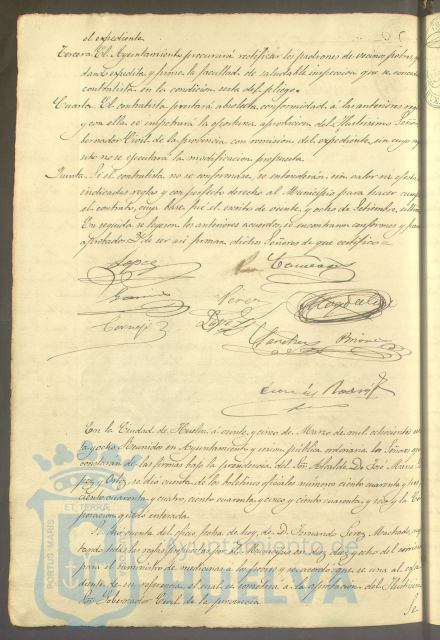 el expediente.
Tercera El Ayuntamiento procurará rectificar los padrones de vecinos pobres
dando expedita y firme la facultad de saludable inspeccion que se concede
contratista en la condicion sesta del pliego.
Cuarta El contratista prestará absoluta conformidad á las anteriores reglas
y con ella se impetrará la oportuna aprobacion del Ilustrisimo Señor
bernador Civil de la provincia, con remision del expediente, sin cuyo
sito no se ejecutará la modificacion propuesta.
Quinta Si el contratista no se conformase, se entenderán sin valor ni efecto
indicadas reglas y con perfecto derecho al Municipio para hacer cump
el contrato, cuya base fué el escrito de veinte y ocho de Setiembre último
En seguida se leyeron los anteriores acuerdos, se encontraron conformes y
aprobados. Y de ser así firman dichos Señores de que certifico=
Lopez
Garcia
Cornejo
Perez
Sanchez
En la Ciudad de Huelva á veinte y cinco de Marzo de mil ochocientos
ta y ocho Reunidos en Ayuntamiento y sesion pública ordinaria los Señores que
constarán de las firmas bajo la presidencia del Sor. Alcalde D. José Maria
pez y Ortiz, se dió cuenta de los boletines oficiales número ciento cuarenta y tres
ciento cuarenta y cuatro, ciento cuarenta y cinco y ciento cuarenta y seis y la Cor
poracion quedó enterada.
Se dió cuenta del oficio fecha de hoy, de D. Fernando Perez Machado,
tando todas las reglas propuestas por el Municipio en diez y ocho del corriente
para el suministro de medicinas á los pobres y se acordó que se una al espe
diente de su referencia, el cual se someterá á la aprobacion del Ilustrisimo
Sor. Gobernador Civil de la provincia.
Se
PORTUS MARIS
ET TERRAE
Ayuntamiento de
HUELVA